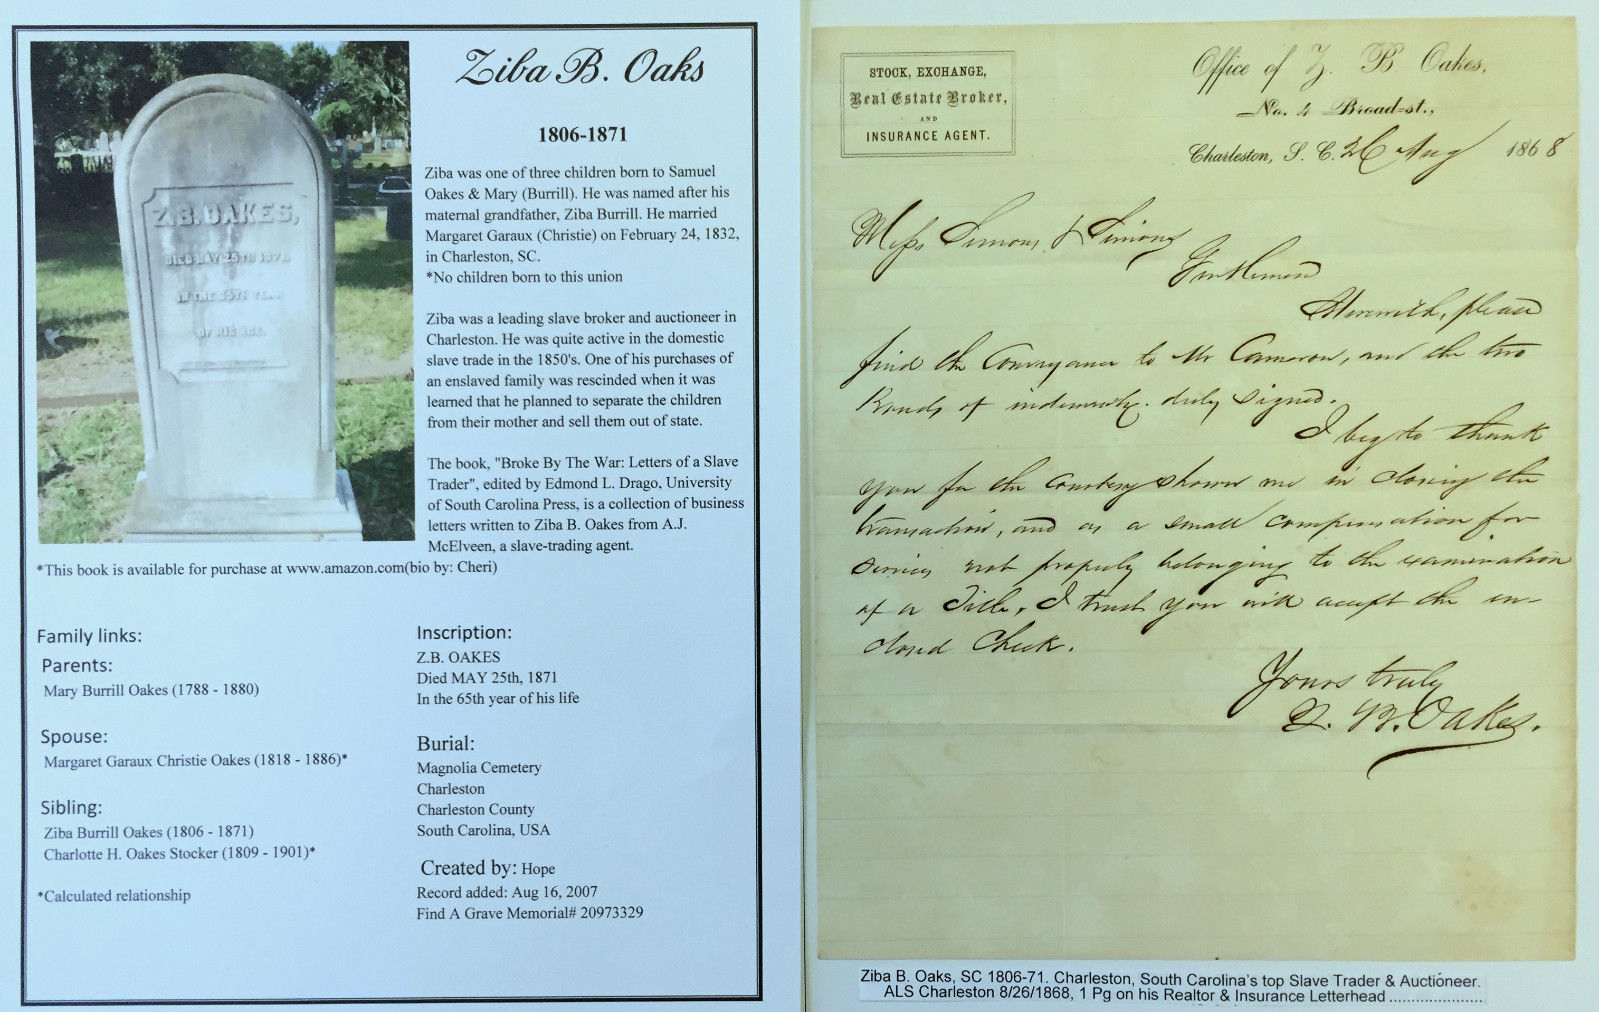 Ziba B. Oaks
1806-1871
Z.B. OAKES,
DIED MAY 25TH 1871.
IN THE 65TH YEAR
OF HIS AGE.
Ziba was one of three children born to Samuel
Oakes & Mary (Burrill). He was named after his
maternal grandfather, Ziba Burrill. He married
Margaret Garaux (Christie) on February 24, 1832,
in Charleston, SC.
*No children born to this union
Ziba was a leading slave broker and auctioneer in
Charleston. He was quite active in the domestic
slave trade in the 1850's. One of his purchases of
an enslaved family was rescinded when it was
learned that he planned to separate the children
from their mother and sell them out of state.
The book, "Broke By The War: Letters of a Slave
Trader", edited by Edmond L. Drago, University
of South Carolina Press, is a collection of business
letters written to Ziba B. Oakes from A.J.
McElveen, a slave-trading agent.
*This book is available for purchase at www.amazon.com(bio by: Cheri)
Family links:
Parents:
Mary Burrill Oakes (1788 - 1880)
Spouse:
Margaret Garaux Christie Oakes (1818 - 1886)*
Sibling:
Ziba Burrill Oakes (1806 - 1871)
Charlotte H. Oakes Stocker (1809 - 1901)*
*Calculated relationship
Inscription:
Z.B. OAKES
Died MAY 25th, 1871
In the 65th year of his life
Burial:
Magnolia Cemetery
Charleston
Charleston County
South Carolina, USA
Created by: Hope
Record added: Aug 16, 2007
Find A Grave Memorial# 20973329
STOCK, EXCHANGE,
Real Estate Broker,
AND
INSURANCE AGENT.
Office of Z. B Oakes,
No. 4 Broad-st.,
Charleston, S. C. 26 Aug 1868
Mess Simons & Simons
Gentlemen
Herewith, please
find the Conveyance to Mr Cameron, and the two
Bonds of indemnity duly signed.
I beg to thank
you for the courtesy shown me in closing the
transaction, and as a small compensation for
services not properly belonging to the examination
of a Title, I trust you will accept the en-
closed check.
Yours truly
Z. B. Oakes.
Ziba B. Oaks, SC 1806-71. Charleston, South Carolina's top Slave Trader & Auctioneer.
ALS Charleston 8/26/1868, 1 Pg on his Realtor & Insurance Letterhead ......................